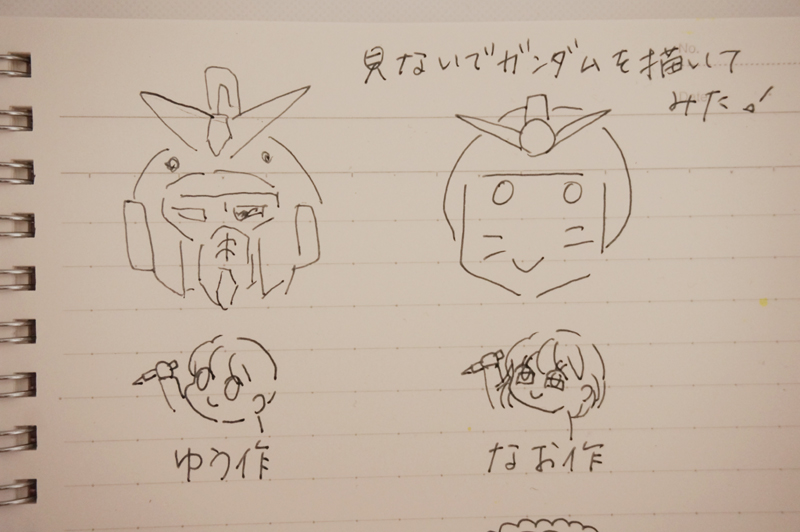 見ないでガンダムを描いて
みた♪
No.
Date
ゆう作
なお作